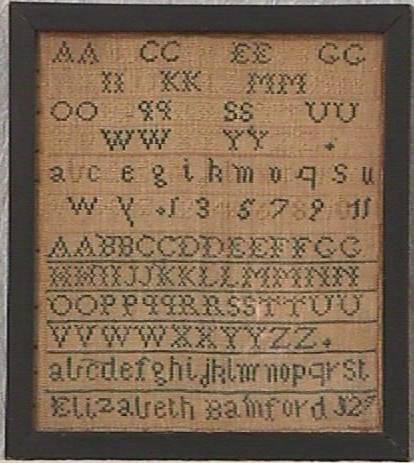 AA CC EE GG
II KK MM
OO qq SS UU
WW YY
a c e g i k m o q s u
w y 1 3 5 7 9 11
AABBCCDDEEFFGG
HHIIJJKKLLMMNN
OOPPqqRRSSTTUU
VVWWXXYYZZ
abcdefghijklmnopqrst
Elizabeth Bamford